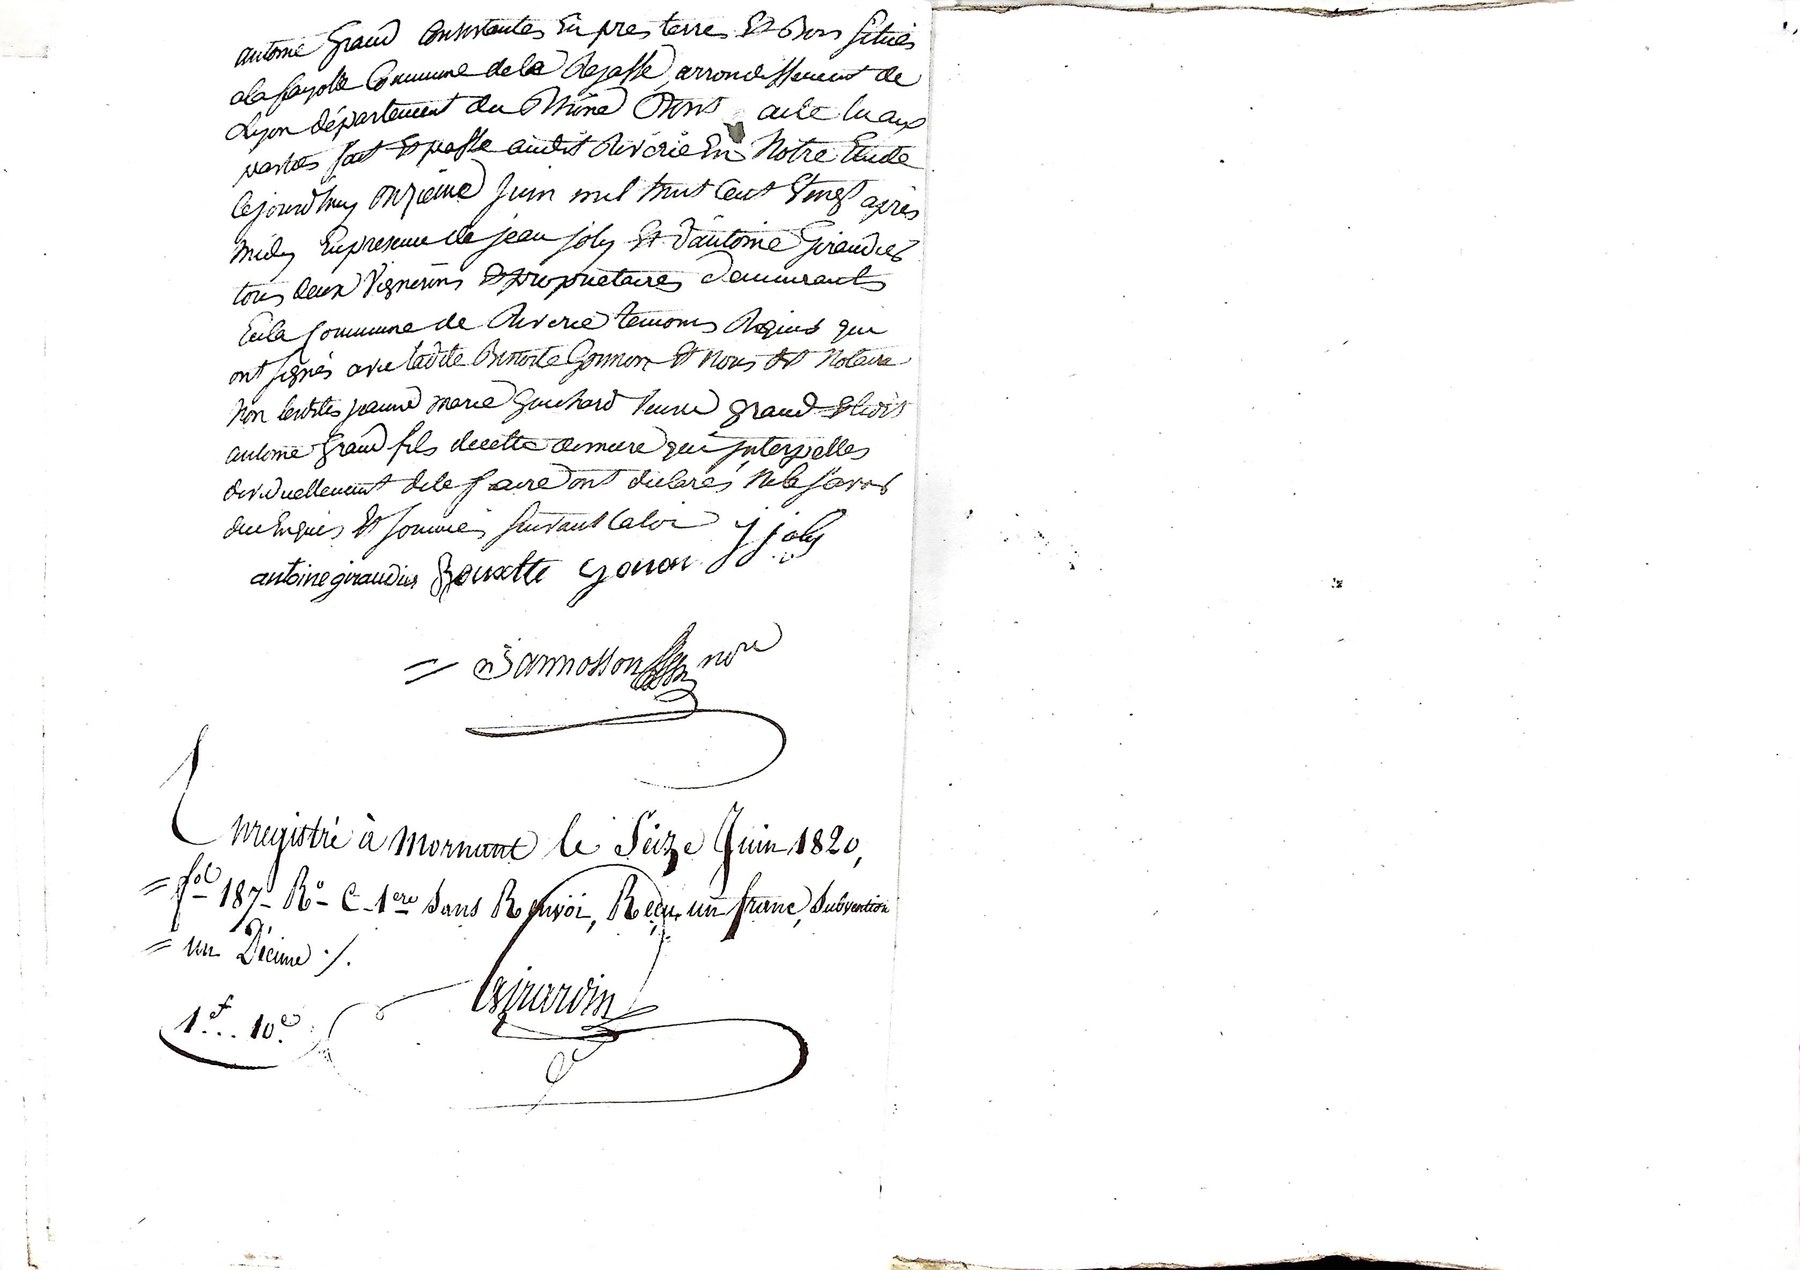 antoine Graud Consistantes En pres terres Et Bois situés
ala fayolle Commune dela Rajasse, arrondissement de
Lyon département du Rhône Dont acte lu aux
parties fait Et passé audit Riverie En Notre Etude
Cejourd'huy onzieme Juin mil huit Cent Vingt après
midy En presence de jean joly Et d'antoine Giraudier
tous deux Vignerons Et propriétaires demeurants
En la Commune de Riverie temoins Requis qui
ont signés avec ladite Benoite Gonnon Et Nous dt Notaire
Non lesdites jeanne marie Guichard Veuve graud Et ledit
antoine Graud fils decette derniere qui interpelles
dividuellement dele faire ont declarés Nele savoir
du Enquis Et sommés suivant la loi j joly
antoine giraudier Benoitte gonon
= Jannosson nore
Enregistré à Mornant le Seize Juin 1820,
= fol 187 - Ro - C - 1ere sans Renvoi, Reçu un franc, subvention
= un Décime ./.
Girardin
1f.. 10c